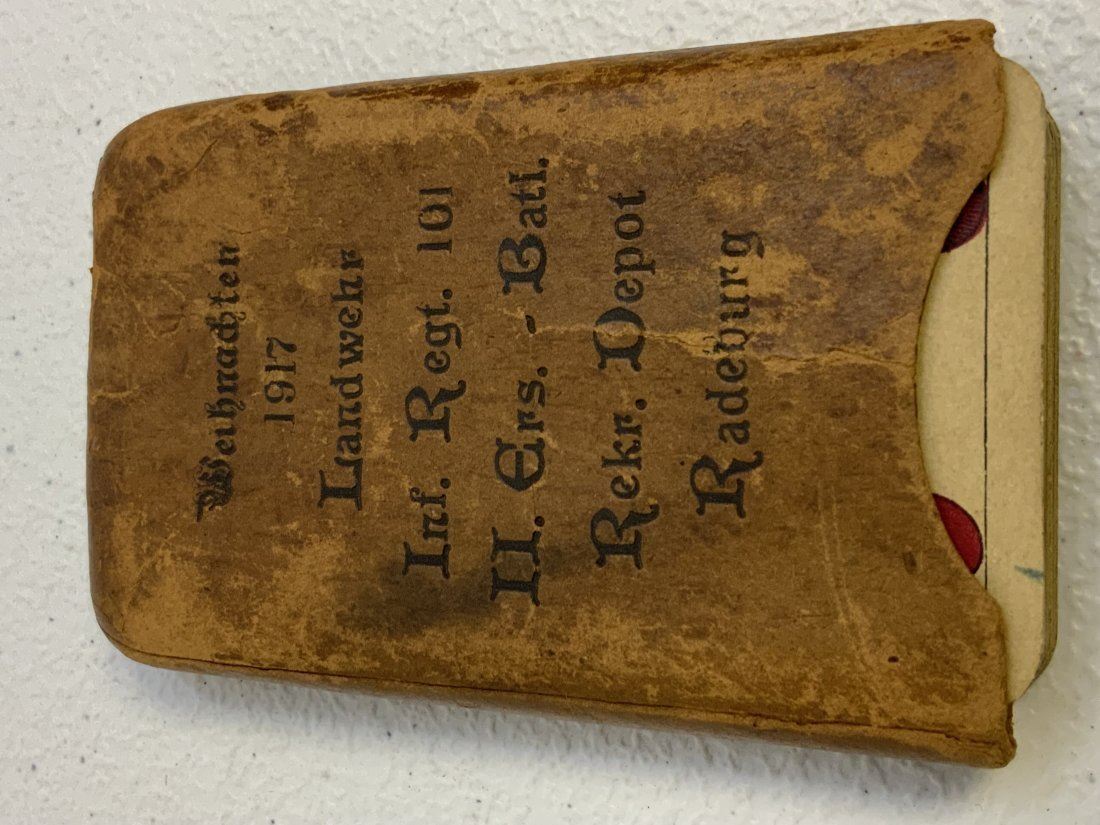 Weihnachten
1917
Landwehr
Inf. Regt. 101
II. Ers. - Batl.
Rekr. Depot
Radeburg